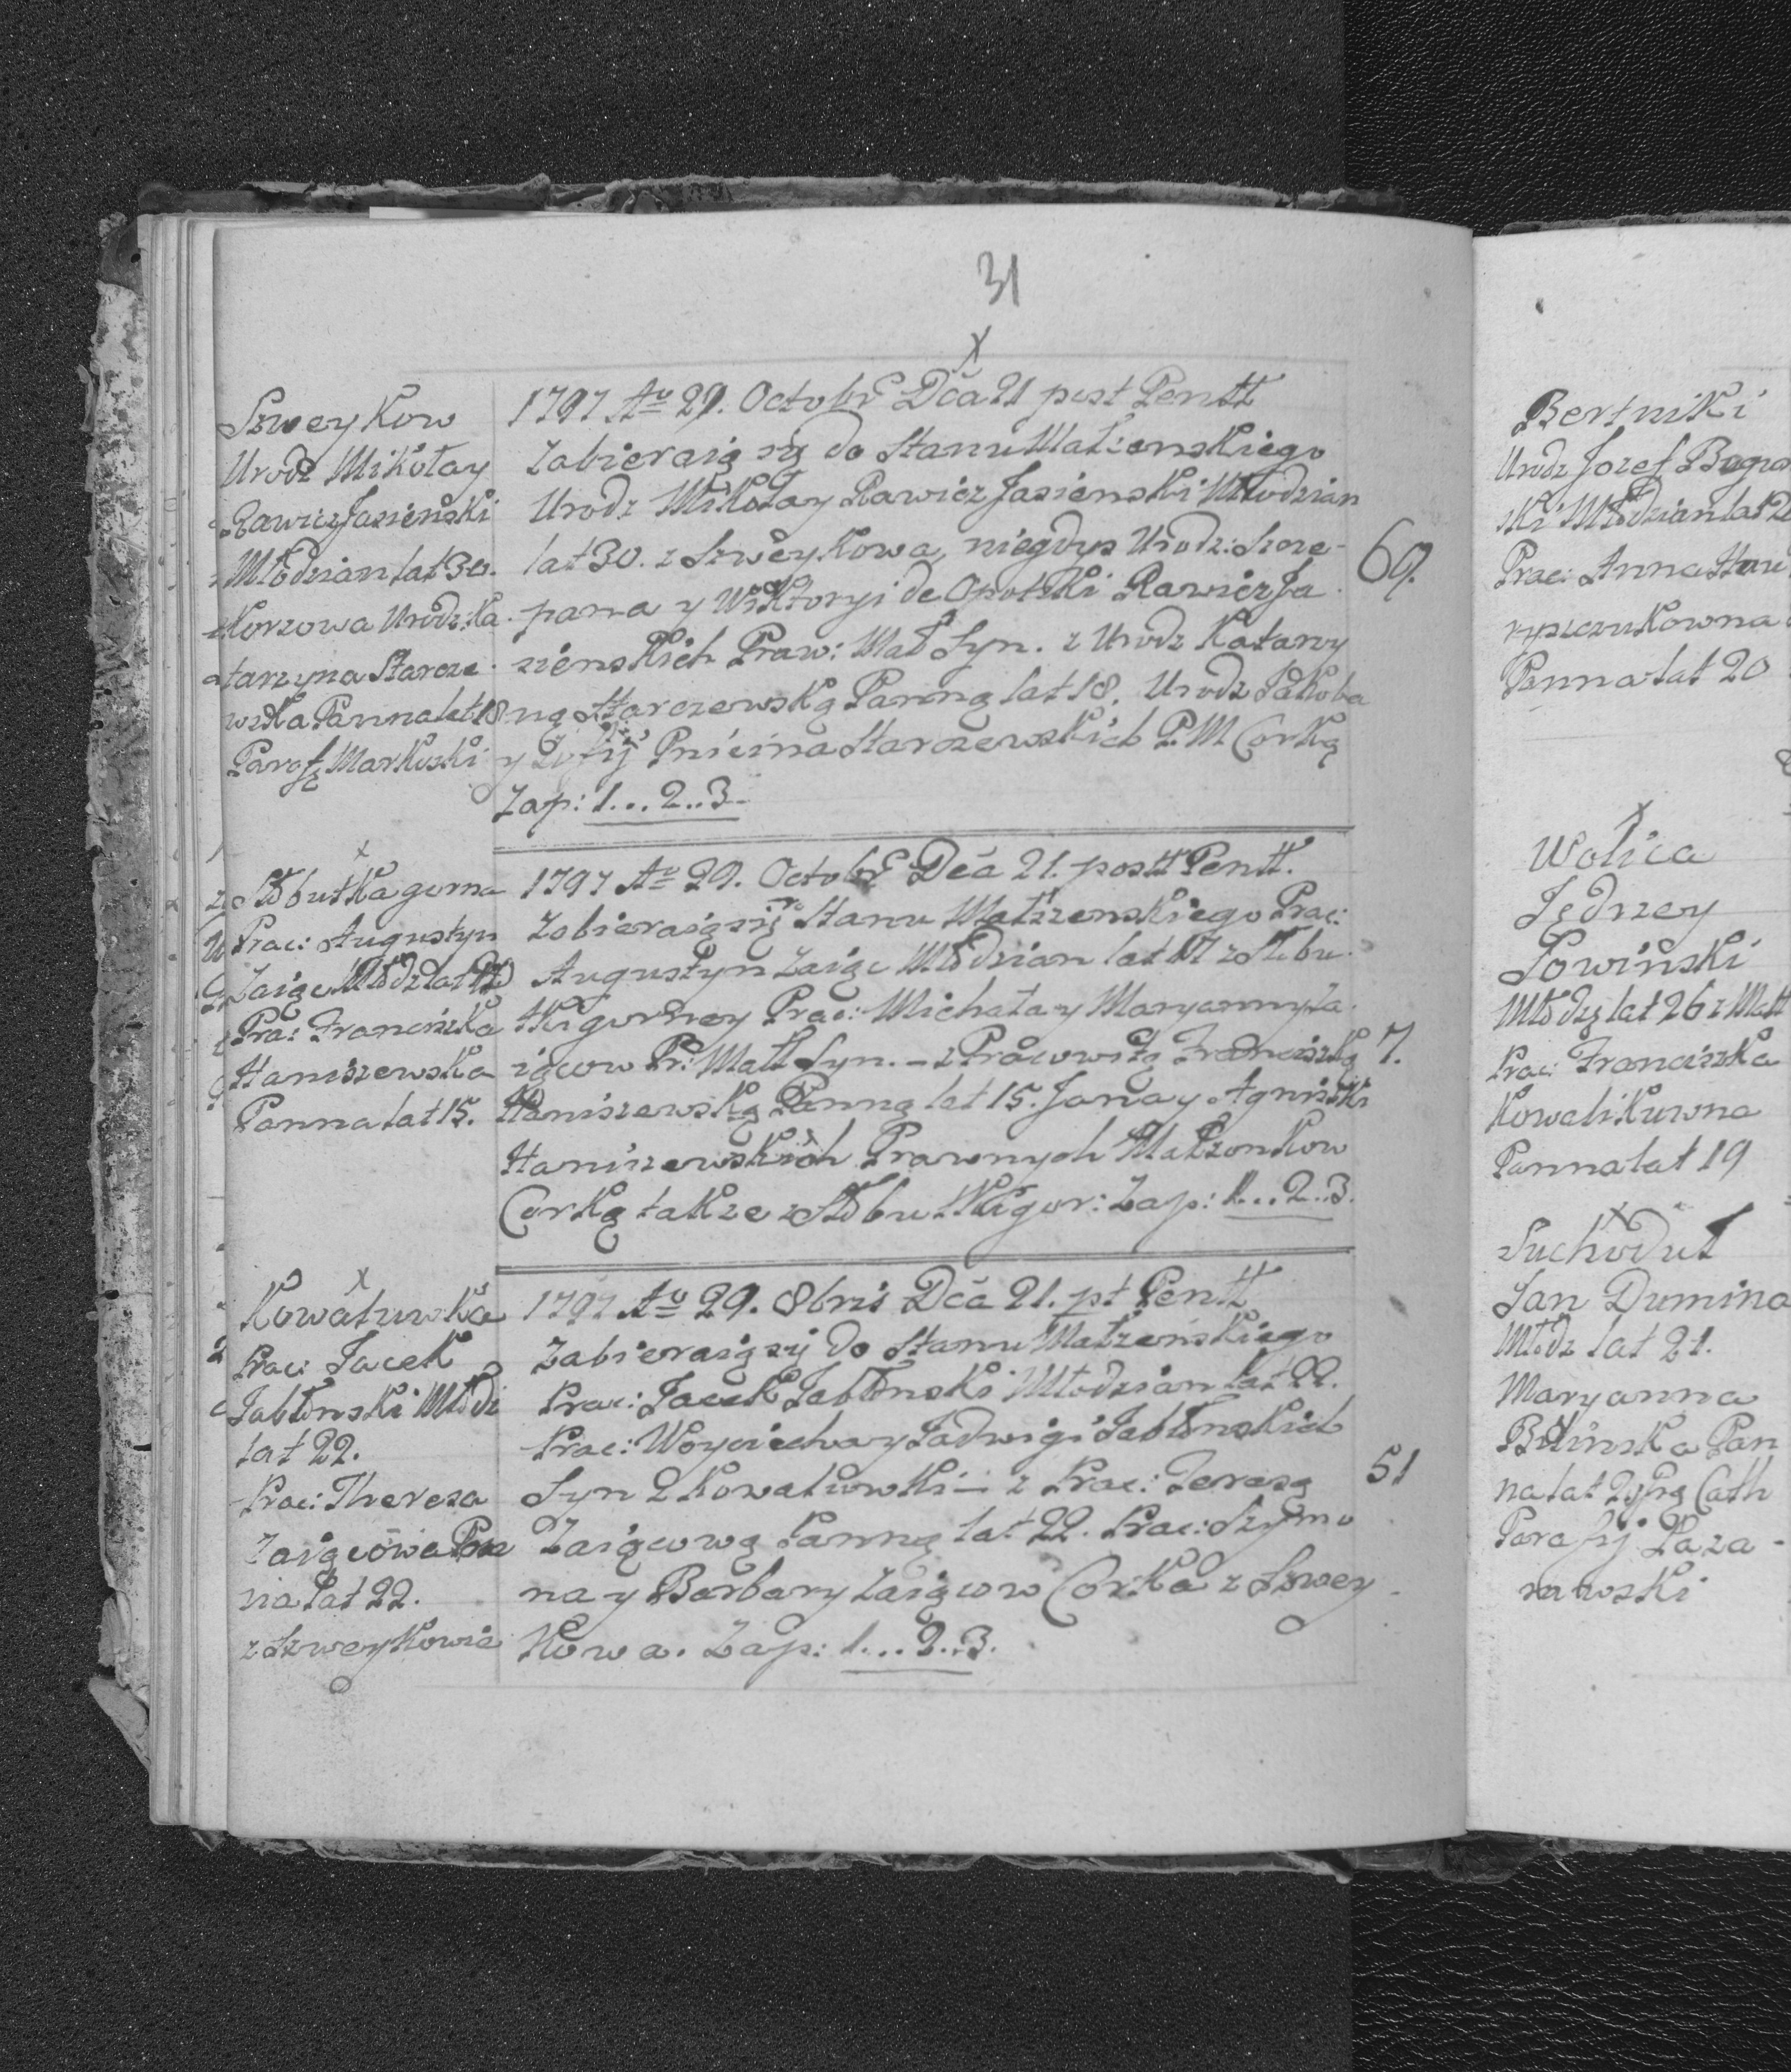 31
x
Szweykow
Urodz Mikołay
Rawicz Jasienski
Młodzian lat 30.
Korzowa Urodz: Ka
tarzyna Starcze
wska Panna lat 18
Paraf Markuski
1797 Ao 29. Octobr Dca 21 post Pentt
Zabieraią się do Stanu Małżenskiego
Urodz Mikołay Rawicz Jasienski Młodzian
lat 30. z Szweykowa, niegdys Urodz: Szcze-
pana y Wiktoryi de Opolski Rawicz Ja
sienskich Praw: Mał Syn. z Urodz Katarzy
ną Starczewską Panną lat 18. Urodz Jakoba
y Zofij Starczewskich P. M Corką
Zap: 1...2..3-
69.
x
Prac: Augustyn
Zaiąc Młodz lat
Prac: Franciszka
Haniszewska
Panna lat 15.
1797 Ao 29. Octobr Dca 21. postt Pentt.
Zabieraią się Stanu Małżenskiego Prac:
Augustyn Zaiąc Młodzian lat z Stłbu
tki gorney Prac: Michała y Maryanny Za
iącow Pr: Małł Syn. - z Pracowitą Franciszką
Haniszewską Panną lat 15. Jana y Agniszki
Haniszewskich Prawnych Małżonkow
Corką takze z Stłbutki gor: Zap: 1...2..3.
7.
x
Kowałuwka
Prac: Jacek
Jabłonski Młodz
lat 22.
Prac: Theresa
Zaiącowa Pan
na lat 22.
z Szweykowa
1797 Ao 29. 8bris Dca 21. pt Pentt
Zabieraią się do Stanu Małżeńskiego
Prac: Jacek Jabłonski Młodzian lat 22.
Prac: Woyciecha y Jadwigi Jabłonskich
Syn z Kowałuwki - z Prac: Teresą
Zaiącową Panną lat 22. Prac: Szymo
na y Barbary Zaiącow Corka z Szwey
kowa. Zap: 1...2..3.
51
Bertniki
Urodz Jozef
ski Młodzian lat
Prac: Anna
Panna lat 20
x
Wolica
Jędrzey
Łowiński
Młodzą lat 26 z
Prac: Franciszka
Kowalikuwna
Panna lat 19
x
Suchoduł
Jan Dumina
Młodz lat 21.
Maryanna
Bilinska Pan
na lat Cath
Parafij Łaza-
rowski